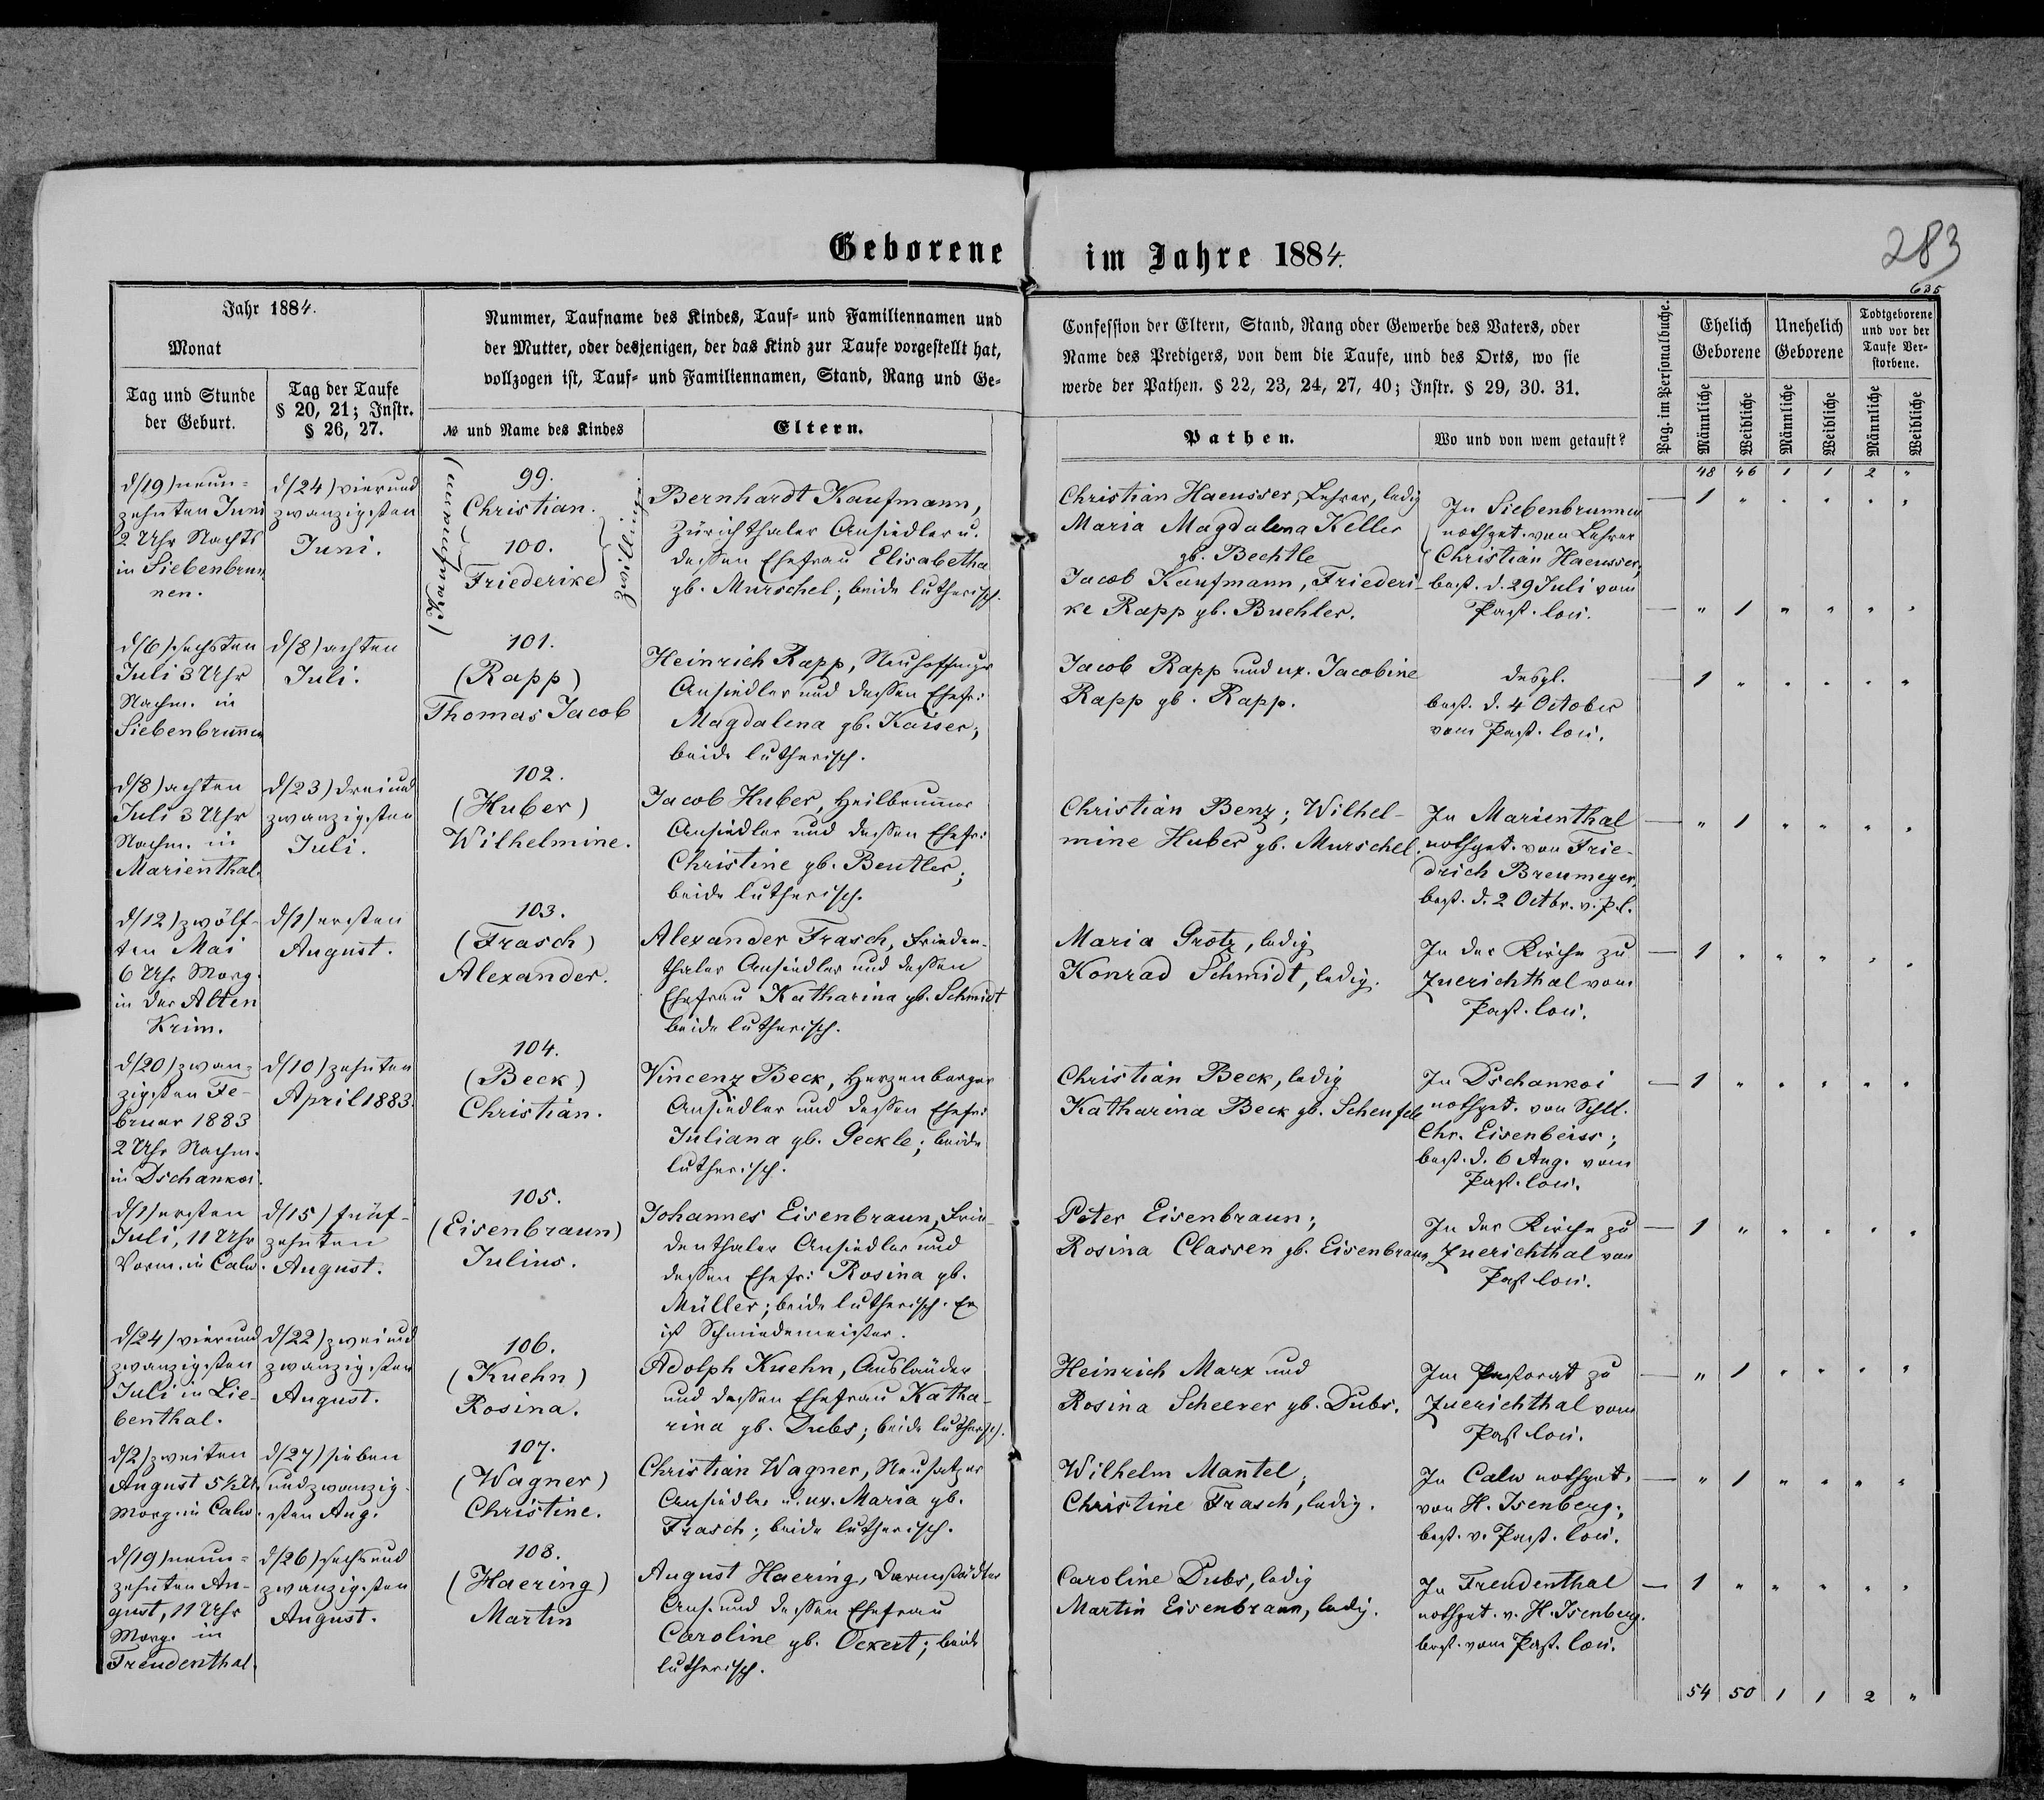 Geborene im Jahre 1884.
283
635
Jahr 1884.
Monat
Tag und Stunde der Geburt.
Tag der Taufe § 20, 21; Instr. § 26, 27.
Nummer, Taufname des Kindes, Tauf- und Familiennamen und
der Mutter, oder desjenigen, der das Kind zur Taufe vorgestellt hat,
vollzogen ist, Tauf- und Familiennamen, Stand, Rang und Ge-
№ und Name des Kindes
Eltern.
Confession der Eltern, Stand, Rang oder Gewerbe des Vaters, oder
Name des Predigers, von dem die Taufe, und des Orts, wo sie
werde der Pathen. § 22, 23, 24, 27, 40; Instr. § 29, 30. 31.
Pathen.
Wo und von wem getauft?
Pag. im Personalbuche.
Ehelich Geborene
Unehelich Geborene
Todtgeborene und vor der Taufe Verstorbene.
Männliche
Weibliche
Männliche
Weibliche
Männliche
Weibliche
48 46 1 1 2 "
d/19) neun-
zehnten Juni
2 Uhr Nachts
in Siebenbrun
nen.
d/24) vierund
zwanzigsten
Juni.
(Kaufmann)
99.
Christian.
100.
Friederike
Zwillinge.
Bernhardt Kaufmann,
Zürichthaler Ansiedler u.
dessen Ehefrau Elisabetha
gb. Murschel; beide lutherisch.
Christian Haeusser, Lehrer, ledig
Maria Magdalena Keller
gb. Bechtle
Jacob Kaufmann, Friederi-
ke Rapp gb. Buehler.
In Siebenbrunnen
nothget. von Lehrer
Christian Haeusser,
best. d. 29 Juli vom
Past. loci.
1 " " " " "
" 1 " " " "
d/6) sechsten
Juli 3 Uhr
Nachm. in
Siebenbrunnen
d/8) achten
Juli.
101.
(Rapp)
Thomas Jacob
Heinrich Rapp, Neuhoffnunger
Ansiedler und dessen Ehefr:
Magdalena gb. Kaiser;
beide lutherisch.
Jacob Rapp und ux. Jacobine
Rapp gb. Rapp.
desgl.
best. d. 4 October
vom Past. loci.
1 " " " " "
d/8) achten
Juli 3 Uhr
Nachm. in
Marienthal.
d/23) dreiund
zwanzigsten
Juli.
102.
(Huber)
Wilhelmine.
Jacob Huber, Heilbrunner
Ansiedler und dessen Ehefr:
Christine gb. Beutler;
beide lutherisch.
Christian Benz; Wilhel-
mine Huber gb. Murschel.
In Marienthal
nothget. von Frie-
drich Breumeyer,
best. d. 2 Octbr. v. P. l.
" 1 " " " "
d/12) zwölf-
ten Mai
6 Uhr Morg.
in der Alten
Krim.
d/1) ersten
August.
103.
(Frasch)
Alexander.
Alexander Frasch, Frieden-
thaler Ansiedler und dessen
Ehefrau Katharina gb. Schmidt
beide lutherisch.
Maria Grotz, ledig
Konrad Schmidt, ledig.
In der Kirche zu
Zuerichthal vom
Past. loci.
1 " " " " "
d/20) zwan-
zigsten Fe-
bruar 1883
2 Uhr Nachm.
in Dschankoi.
d/10) zehnten
April 1883.
104.
(Beck)
Christian.
Vincenz Beck, Herzenberger
Ansiedler und dessen Ehefr:
Juliana gb. Geckle; beide
lutherisch.
Christian Beck, ledig
Katharina Beck gb. Scheufele
In Dschankoi
nothget. von Schll.
Chr. Eisenbeiss;
best. d. 6 Aug. vom
Past. loci.
1 " " " " "
d/1) ersten
Juli, 11 Uhr
Vorm. in Calw.
d/15) fünf-
zehnten
August.
105.
(Eisenbraun)
Julius.
Johannes Eisenbraun, Frie-
denthaler Ansiedler und
dessen Ehefr: Rosina gb.
Müller; beide lutherisch. Er
ist Schmiedemeister.
Peter Eisenbraun;
Rosina Classen gb. Eisenbraun
In der Kirche zu
Zuerichthal von
Past loci.
1 " " " " "
d/24) vierund
zwanzigsten
Juli in Lie-
benthal.
d/22) zweiund
zwanzigsten
August.
106.
(Kuehn)
Rosina.
Adolph Kuehn, Ausländer
und dessen Ehefrau Katha-
rina gb. Dubs; beide luthersch.
Heinrich Marx und
Rosina Scheerer gb. Dubs.
Im Pastorat zu
Zuerichthal vom
Past loci.
" 1 " " " "
d/2) zweiten
August 5½ U.
Morg. in Calw.
d/27) sieben
undzwanzig-
sten Aug.
107.
(Wagner)
Christine.
Christian Wagner, Neusatzer
Ansiedler u. ux. Maria gb.
Frasch; beide lutherisch.
Wilhelm Mantel;
Christine Frasch, ledig.
In Calw nothget.
von H. Isenberg;
best. v. Past. loci.
" 1 " " " "
d/19) neun-
zehnten Au-
gust, 11 Uhr
Morg. in
Freudenthal.
d/26) sechsund
zwanzigsten
August.
108.
(Haering)
Martin
August Haering, Darmstädter
Ans. und dessen Ehefrau
Caroline gb. Ockert; beide
lutherisch.
Caroline Dubs, ledig
Martin Eisenbraun, ledig.
In Freudenthal
nothget. v. H. Isenberg.
best. vom Past. loci.
1 " " " " "
54 50 1 1 2 "